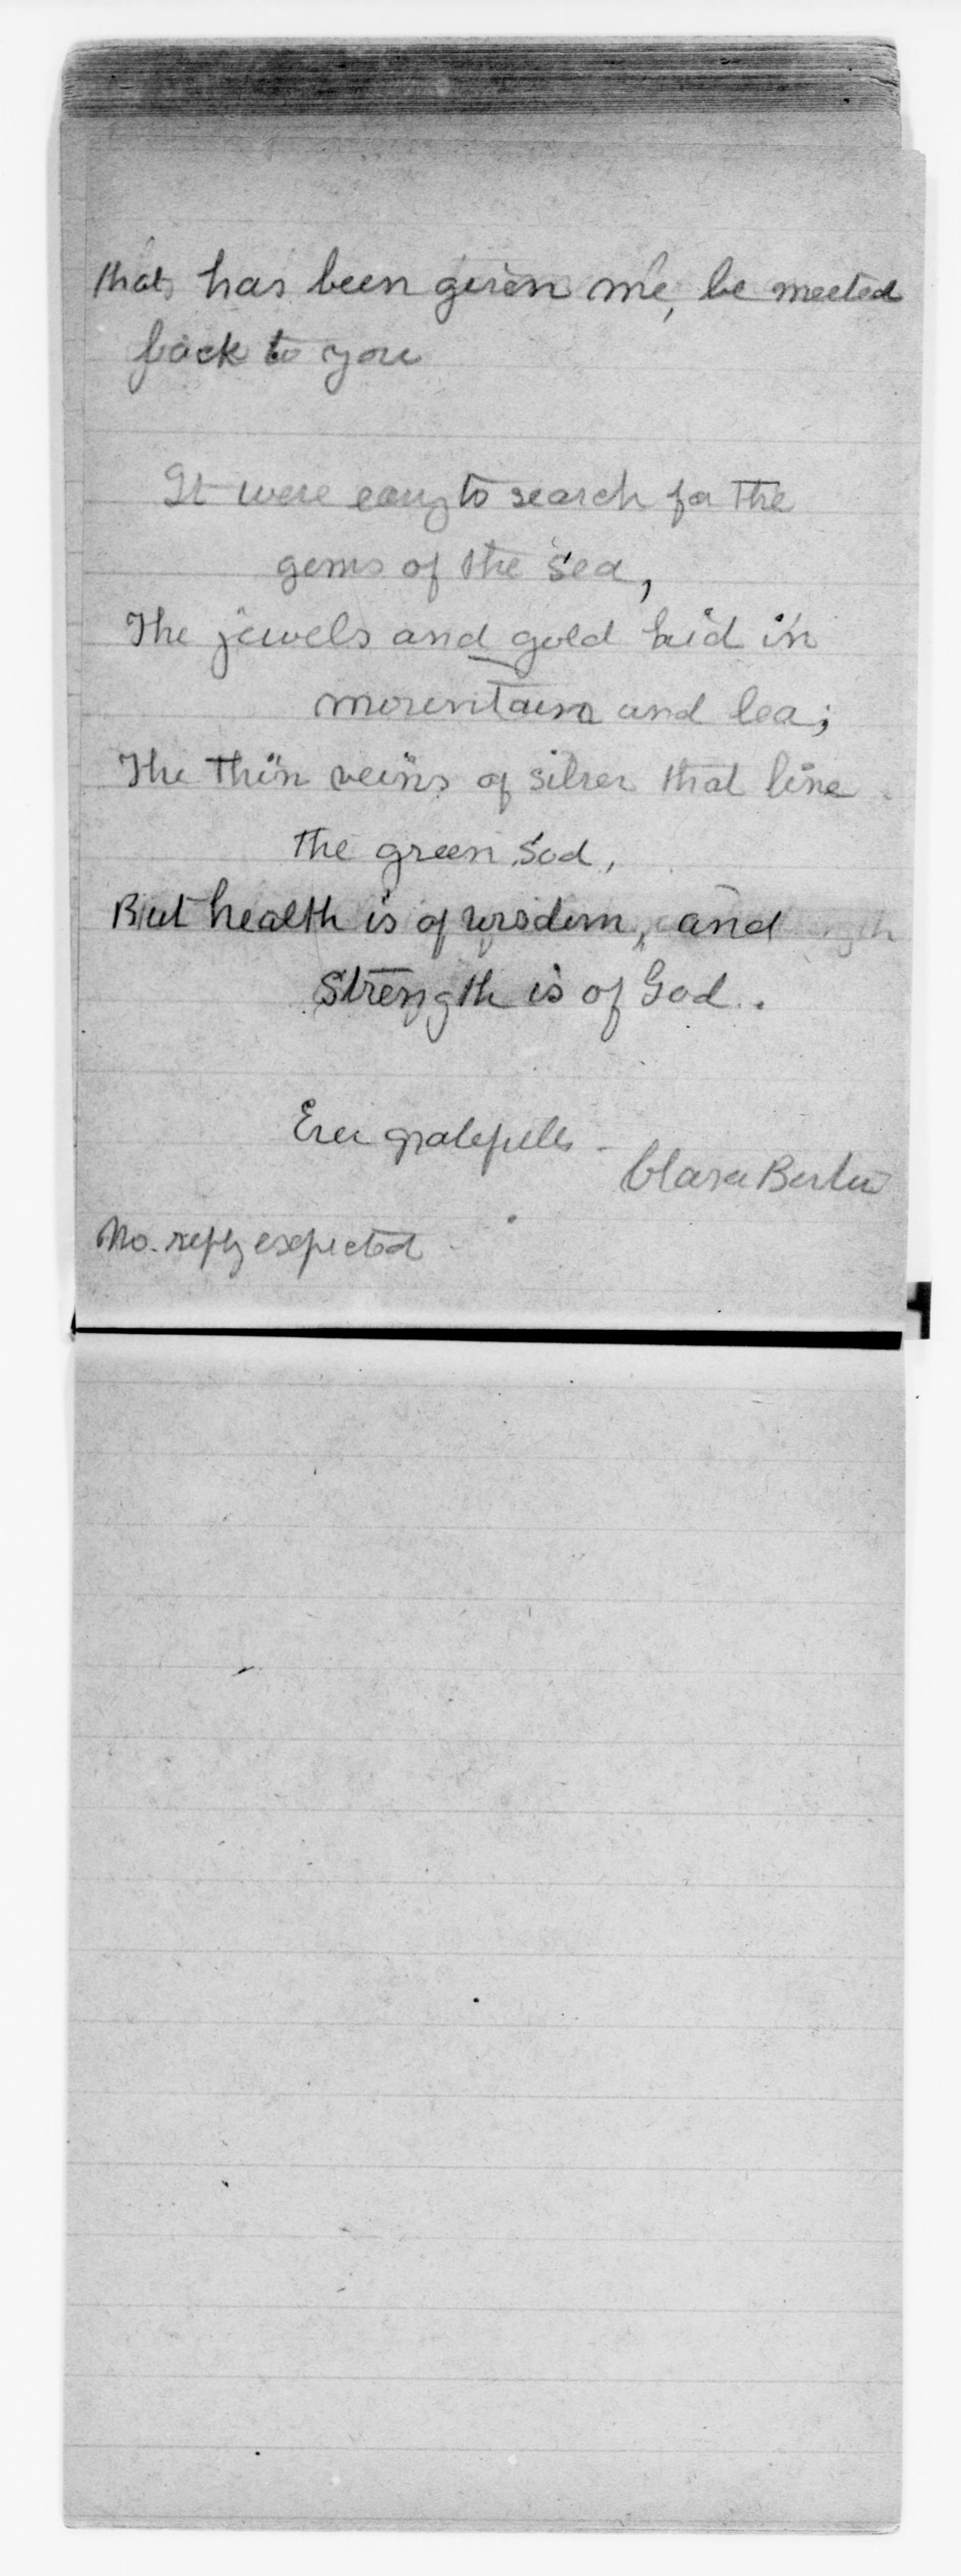 that has been given me, be meeted
back to you
It were easy to search for the
gems of the sea,
The jewels and gold hid in
mountain and lea;
The thin veins of silver that line
the green sod,
But health is of wisdom, and
strength is of God.
Ever gratefully
Clara Barton
No. reply expected